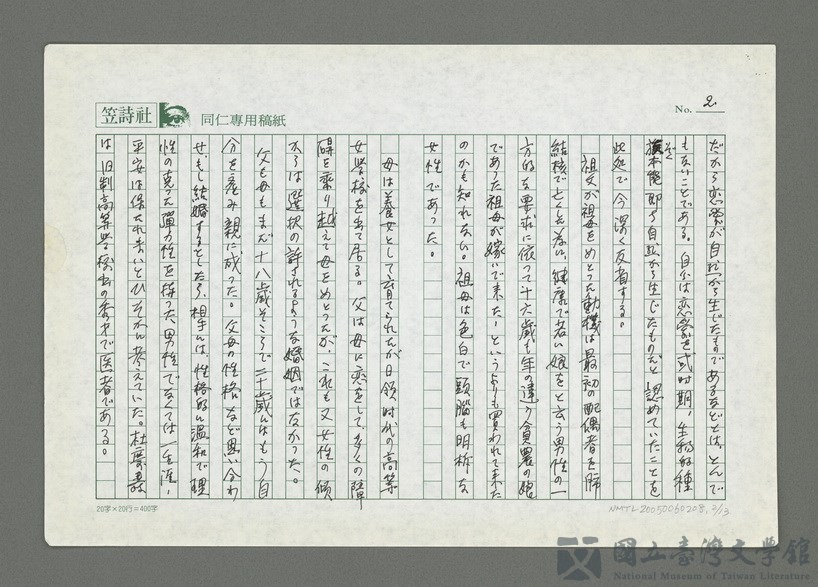 笠詩社
同仁專用稿紙
No. 2.
だから恋愛が自我から生じたものであるなどとは、とんで
もないことである。自分は恋愛を或時期、生物の種
族本能即ち自我から生じたものだと認めていたことを
此処で今深く反省する。
祖父が祖母をめとった動機は最初の配偶者を肺
結核で亡くした為に、健康で若い娘をと云う男性の一
方的な要求に依って十六歳も年の違う貧農の娘
であった祖母が嫁いで来た、というよりも買われて来た
のかも知れない。祖母は色白で頭脳も明晰な
女性であった。
母は養女として育てられたが日領時代の高等
女学校を出て居る。父は母に恋をして、多くの障
碍を乗り越えて母をめとったが、これも又女性の側
からは選択の許されるような婚姻ではなかった。
父も母もまだ十八歳そこそこで二十歳にはもう自
分を産み親に成った。父母の性格など思い合わ
せもし結婚するとしたら、相手は、性格的に温和で理
性の克った弾力性を持った男性でなくては一生涯、
平安は保たれまいとひそかに考えていた。杜
は旧制高等学校出の秀才で医者である。
20字×20行=400字
NMTL20050060208, 2/13
國立臺灣文學館
National Museum of Taiwan Literature